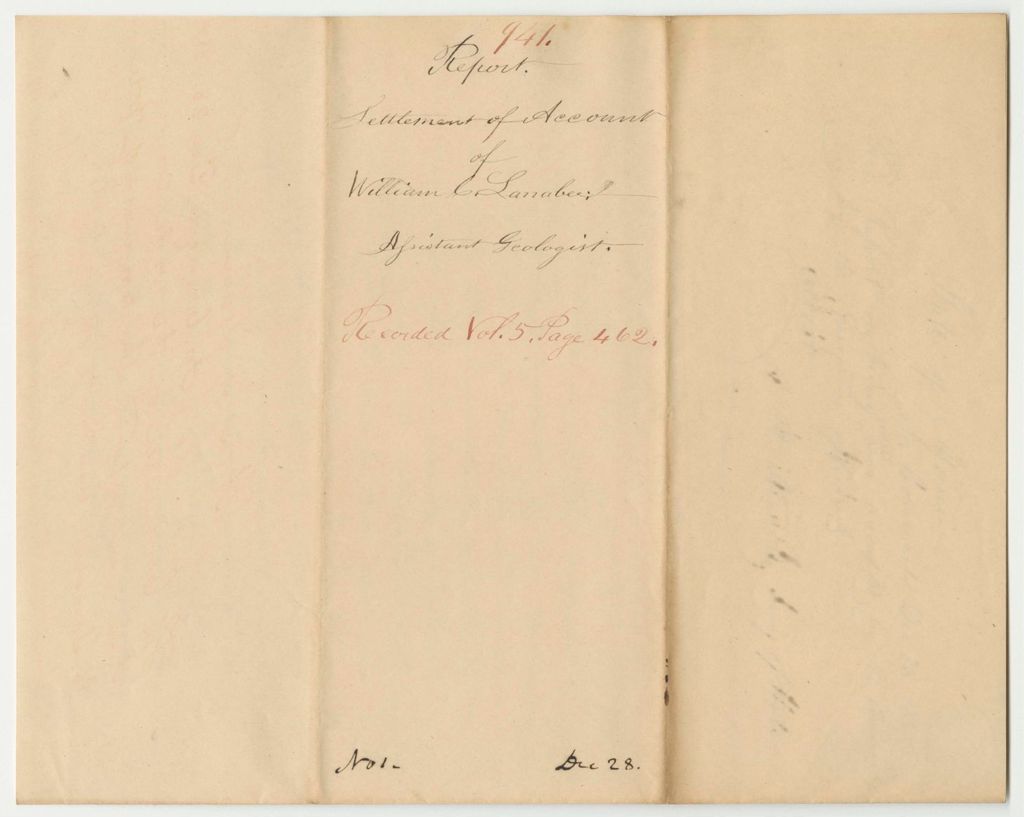 941.
Report.
Settlement of Account
of
William C. Lanabee
Assistant Geologist.
Recorded Vol. 5, Page 462.
No 1-
Dec 28.